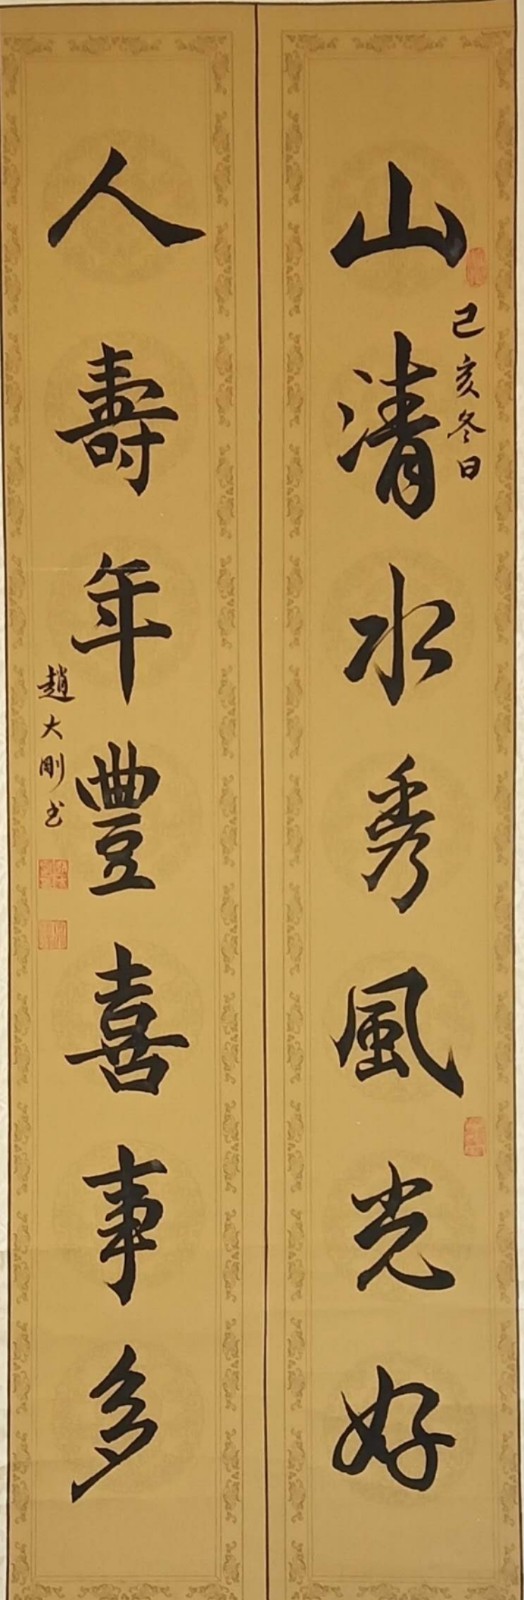 山清水秀風光好
己亥冬日
人壽年豐喜事多
趙大剛书